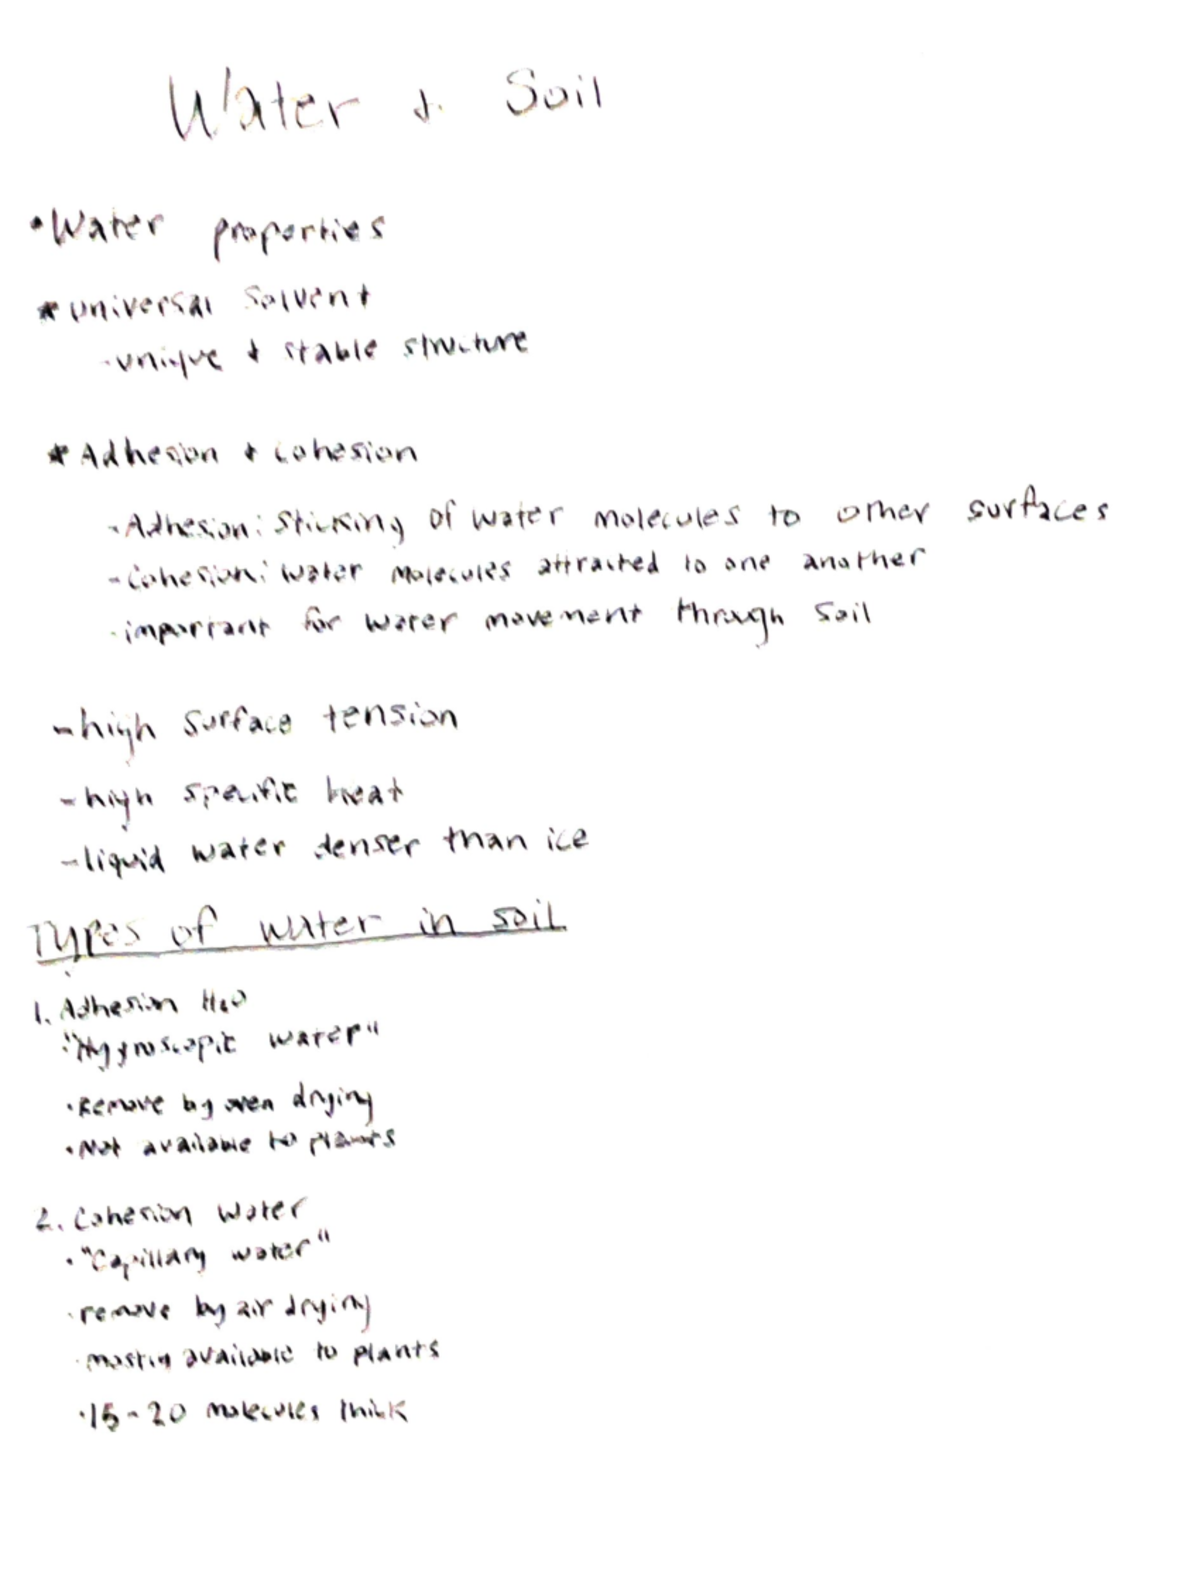 Water & Soil
•Water properties
* universal solvent
-unique & stable structure
* Adhesion & cohesion
-Adhesion: Sticking of water molecules to other surfaces
-Cohesion: water molecules attracted to one another
-important for water movement through soil
-high surface tension
-high specific heat
-liquid water denser than ice
Types of water in soil
1. Adhesion H2O
• "Hygroscopic water"
•Remove by oven drying
•Not available to plants
2. Cohesion Water
• "Capillary water"
•remove by air drying
•mostly available to plants
•15-20 molecules thick